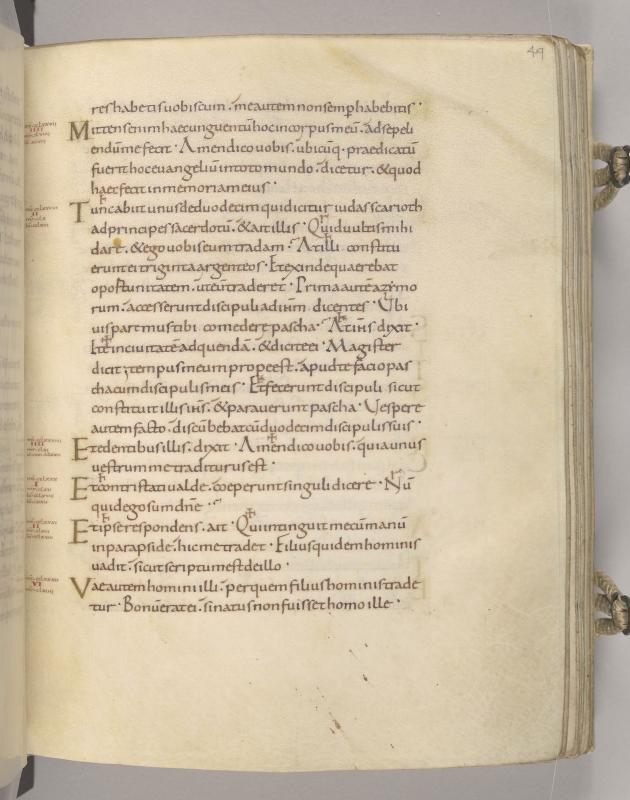 49
res habetis uobiscum. me autem non semp habebitis.
Mittens enim haec unguentū hoc in corpus meū. ad sepeli
endū me fecit. Amen dico uobis. ubicūq. praedicatū
fuerit hoc euangeliū in toto mundo. dicetur. & quod
haec fecit in memoriam eius.
Tunc abiit unus de duodecim qui dicitur iudas scarioth
ad principes sacerdotū. & ait illis. Quid uultis mihi
dare. & ego uobis eum tradam. At illi constitu
erunt ei triginta argenteos. Et exinde quaerebat
oportunitatem. ut eū traderet. Prima autē azymo
rum. accesserunt discipuli ad ihm dicentes. Ubi
uis paremus tibi comedere pascha. At ihs dixit.
Ite in ciuitatē ad quendā. & dicite ei. Magister
dicit; tempus meum prope est. apud te facio pas
cha cum discipulis meis. Et fecerunt discipuli sicut
constituit illis ihs. & parauerunt pascha. Uespere
autem facto. discūbebat cū duodecim discipulis suis.
Et edentibus illis. dixit. Amen dico uobis. quia unus
uestrum me traditurus est.
Et contristati ualde. coeperunt singuli dicere. Nū
quid ego sum dne
Et ipse respondens. ait. Qui intinguit mecū manū
in parapside. hic me tradet. Filius quidem hominis
uadit. sicut scriptum est de illo.
Vae autem homini illi. per quem filius hominis trade
tur. Bonū erat ei. si natus non fuisset homo ille.